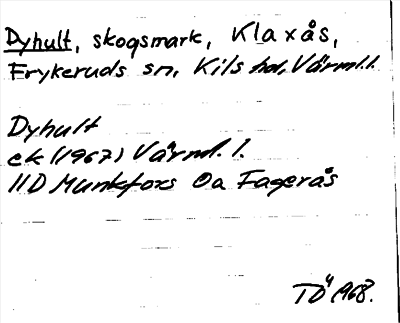 Dyhult, skogsmark, Klaxås,
Frykeruds sn, Kils hd, Värml.l.
Dyhult
ek (1967) Värml. l.
11D Munkfors 0a Fagerås
TD 4 1968.